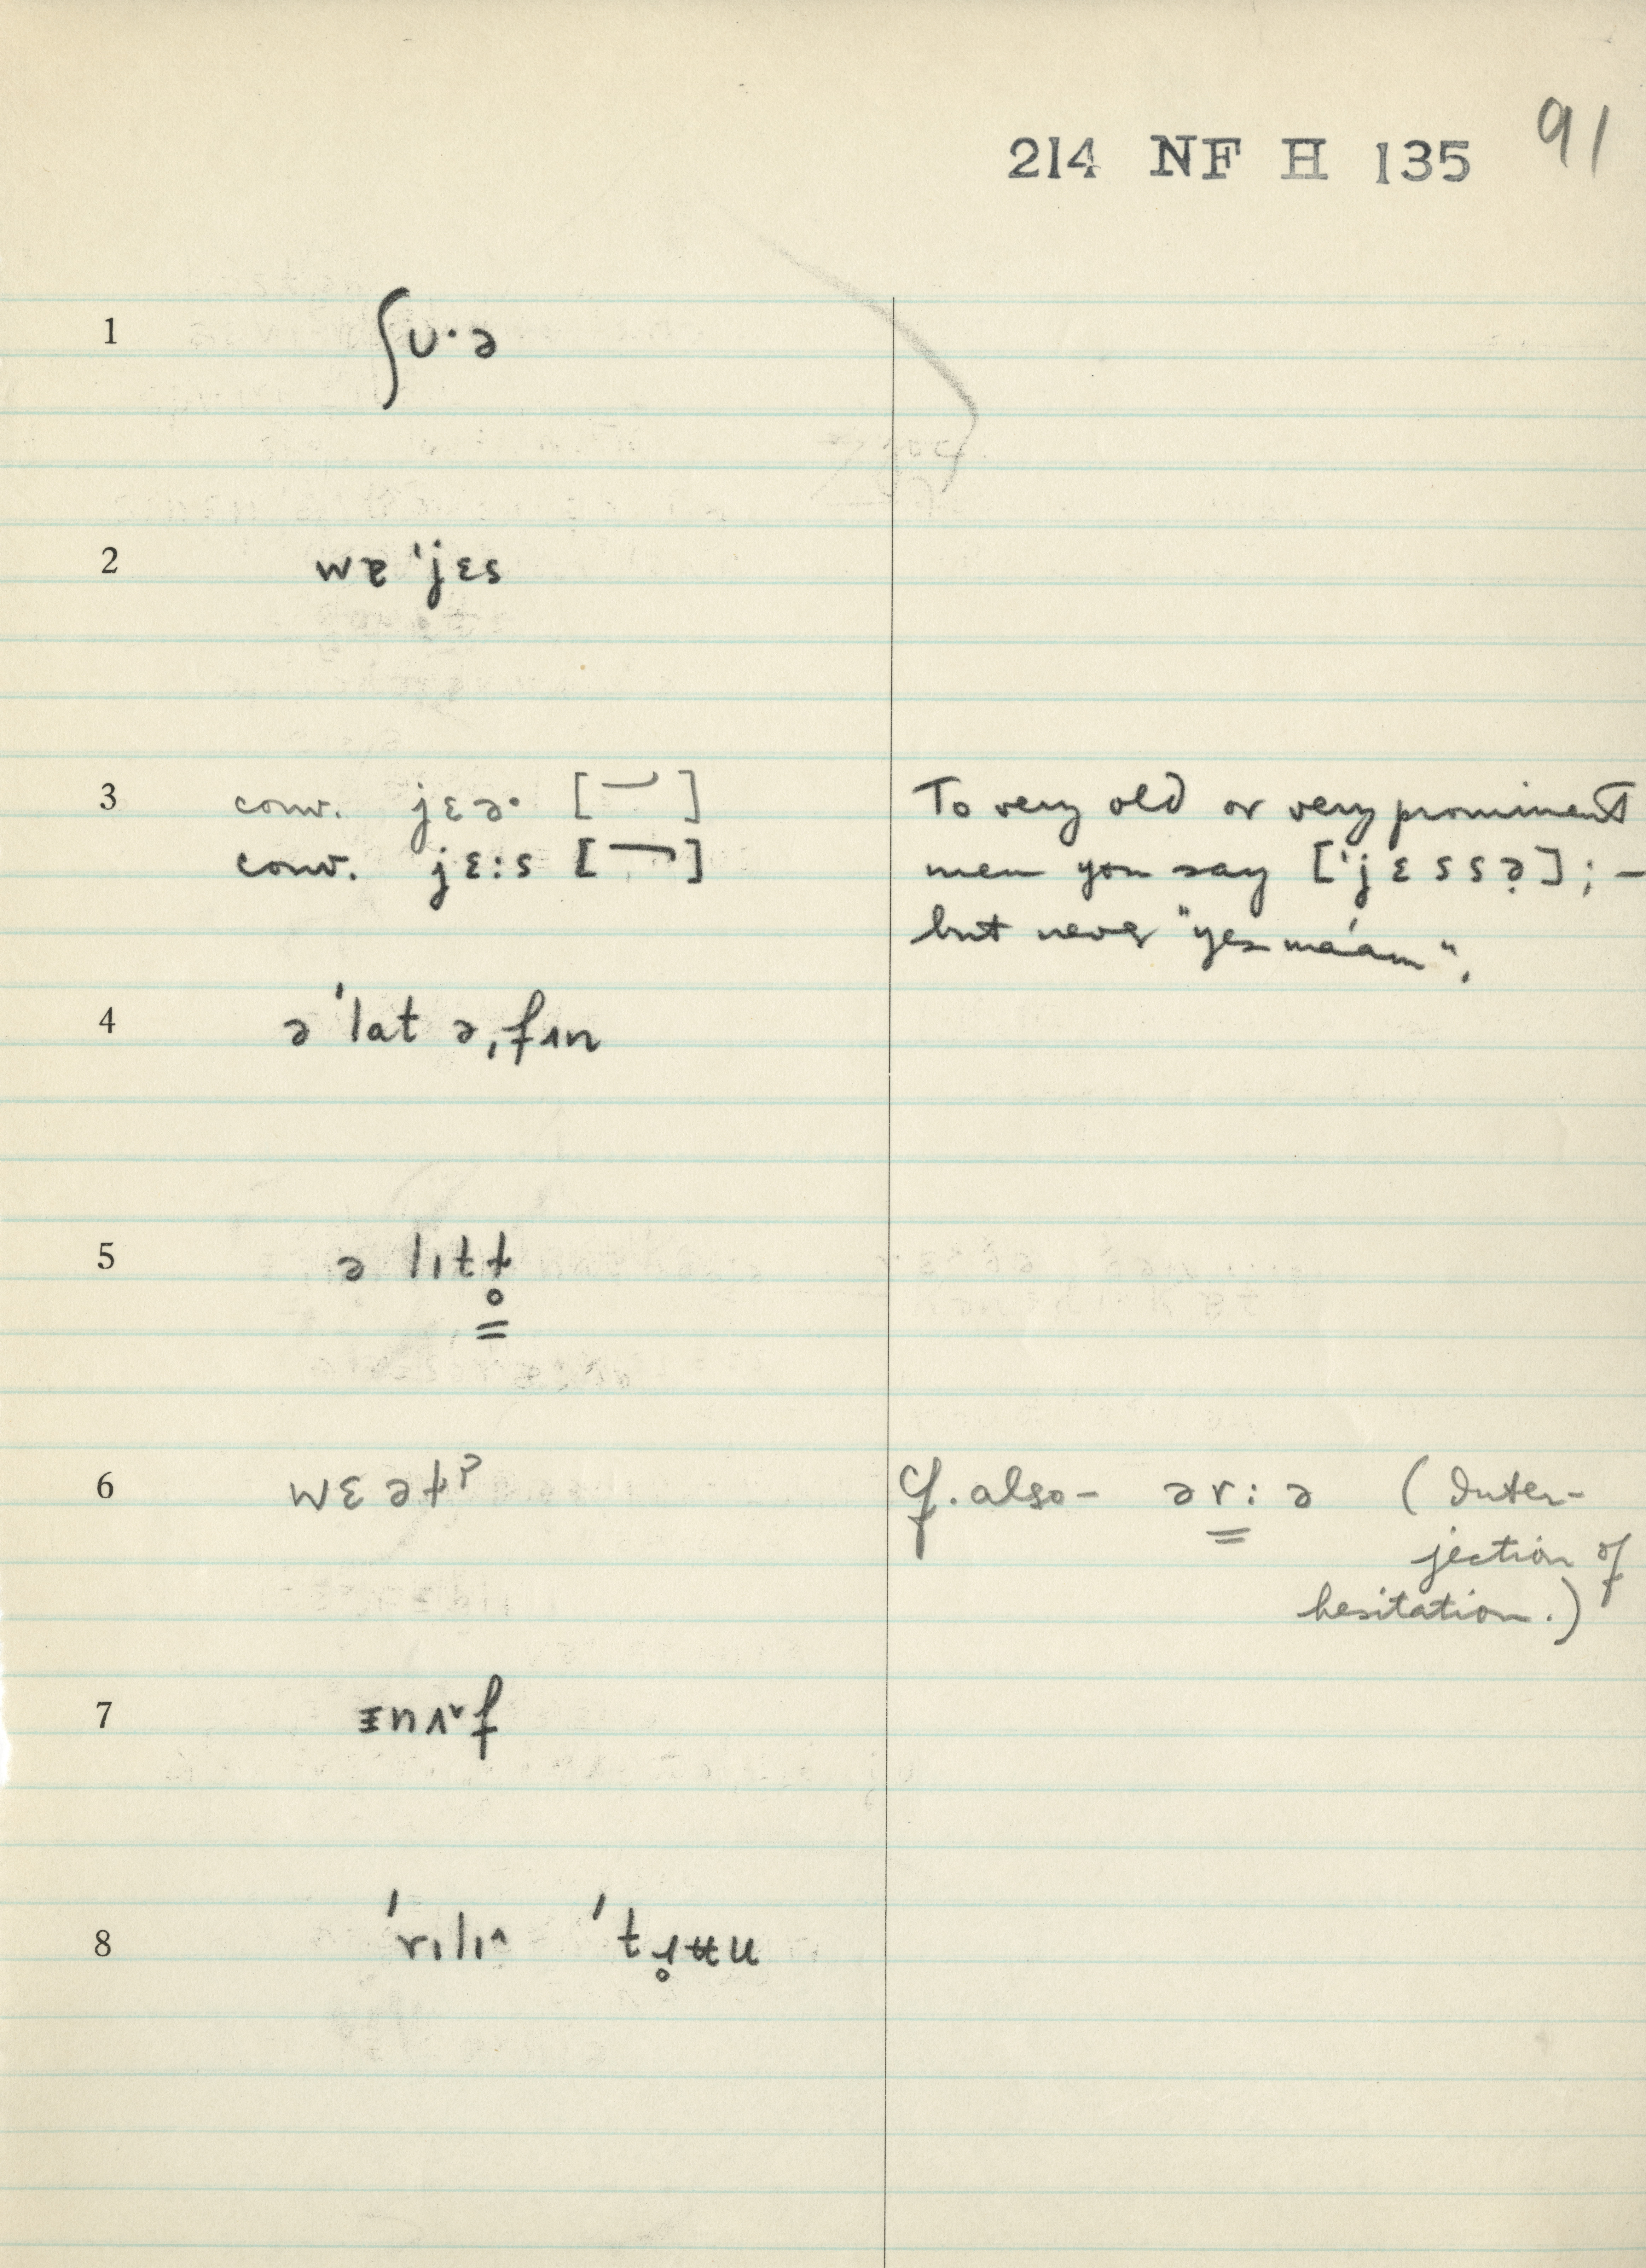 214 NF H 135 91
1 ʃʊ·ə
2 wɐ ˈjɛs
3 conv. jɛə· [ ]
conv. jɛ:s [ ]
To very old or very prominent
men you say [ˈjɛssə̣]; –
but never "yes ma'am".
4 əˈlat əˌfɪn
5 ə lɪtɫ̥
6 wɛəɫˀ
Cf. also – ər:ə (Inter-
jection of
hesitation.)
7 ɪnʌ˅f
8 ˈrɪlɪ^